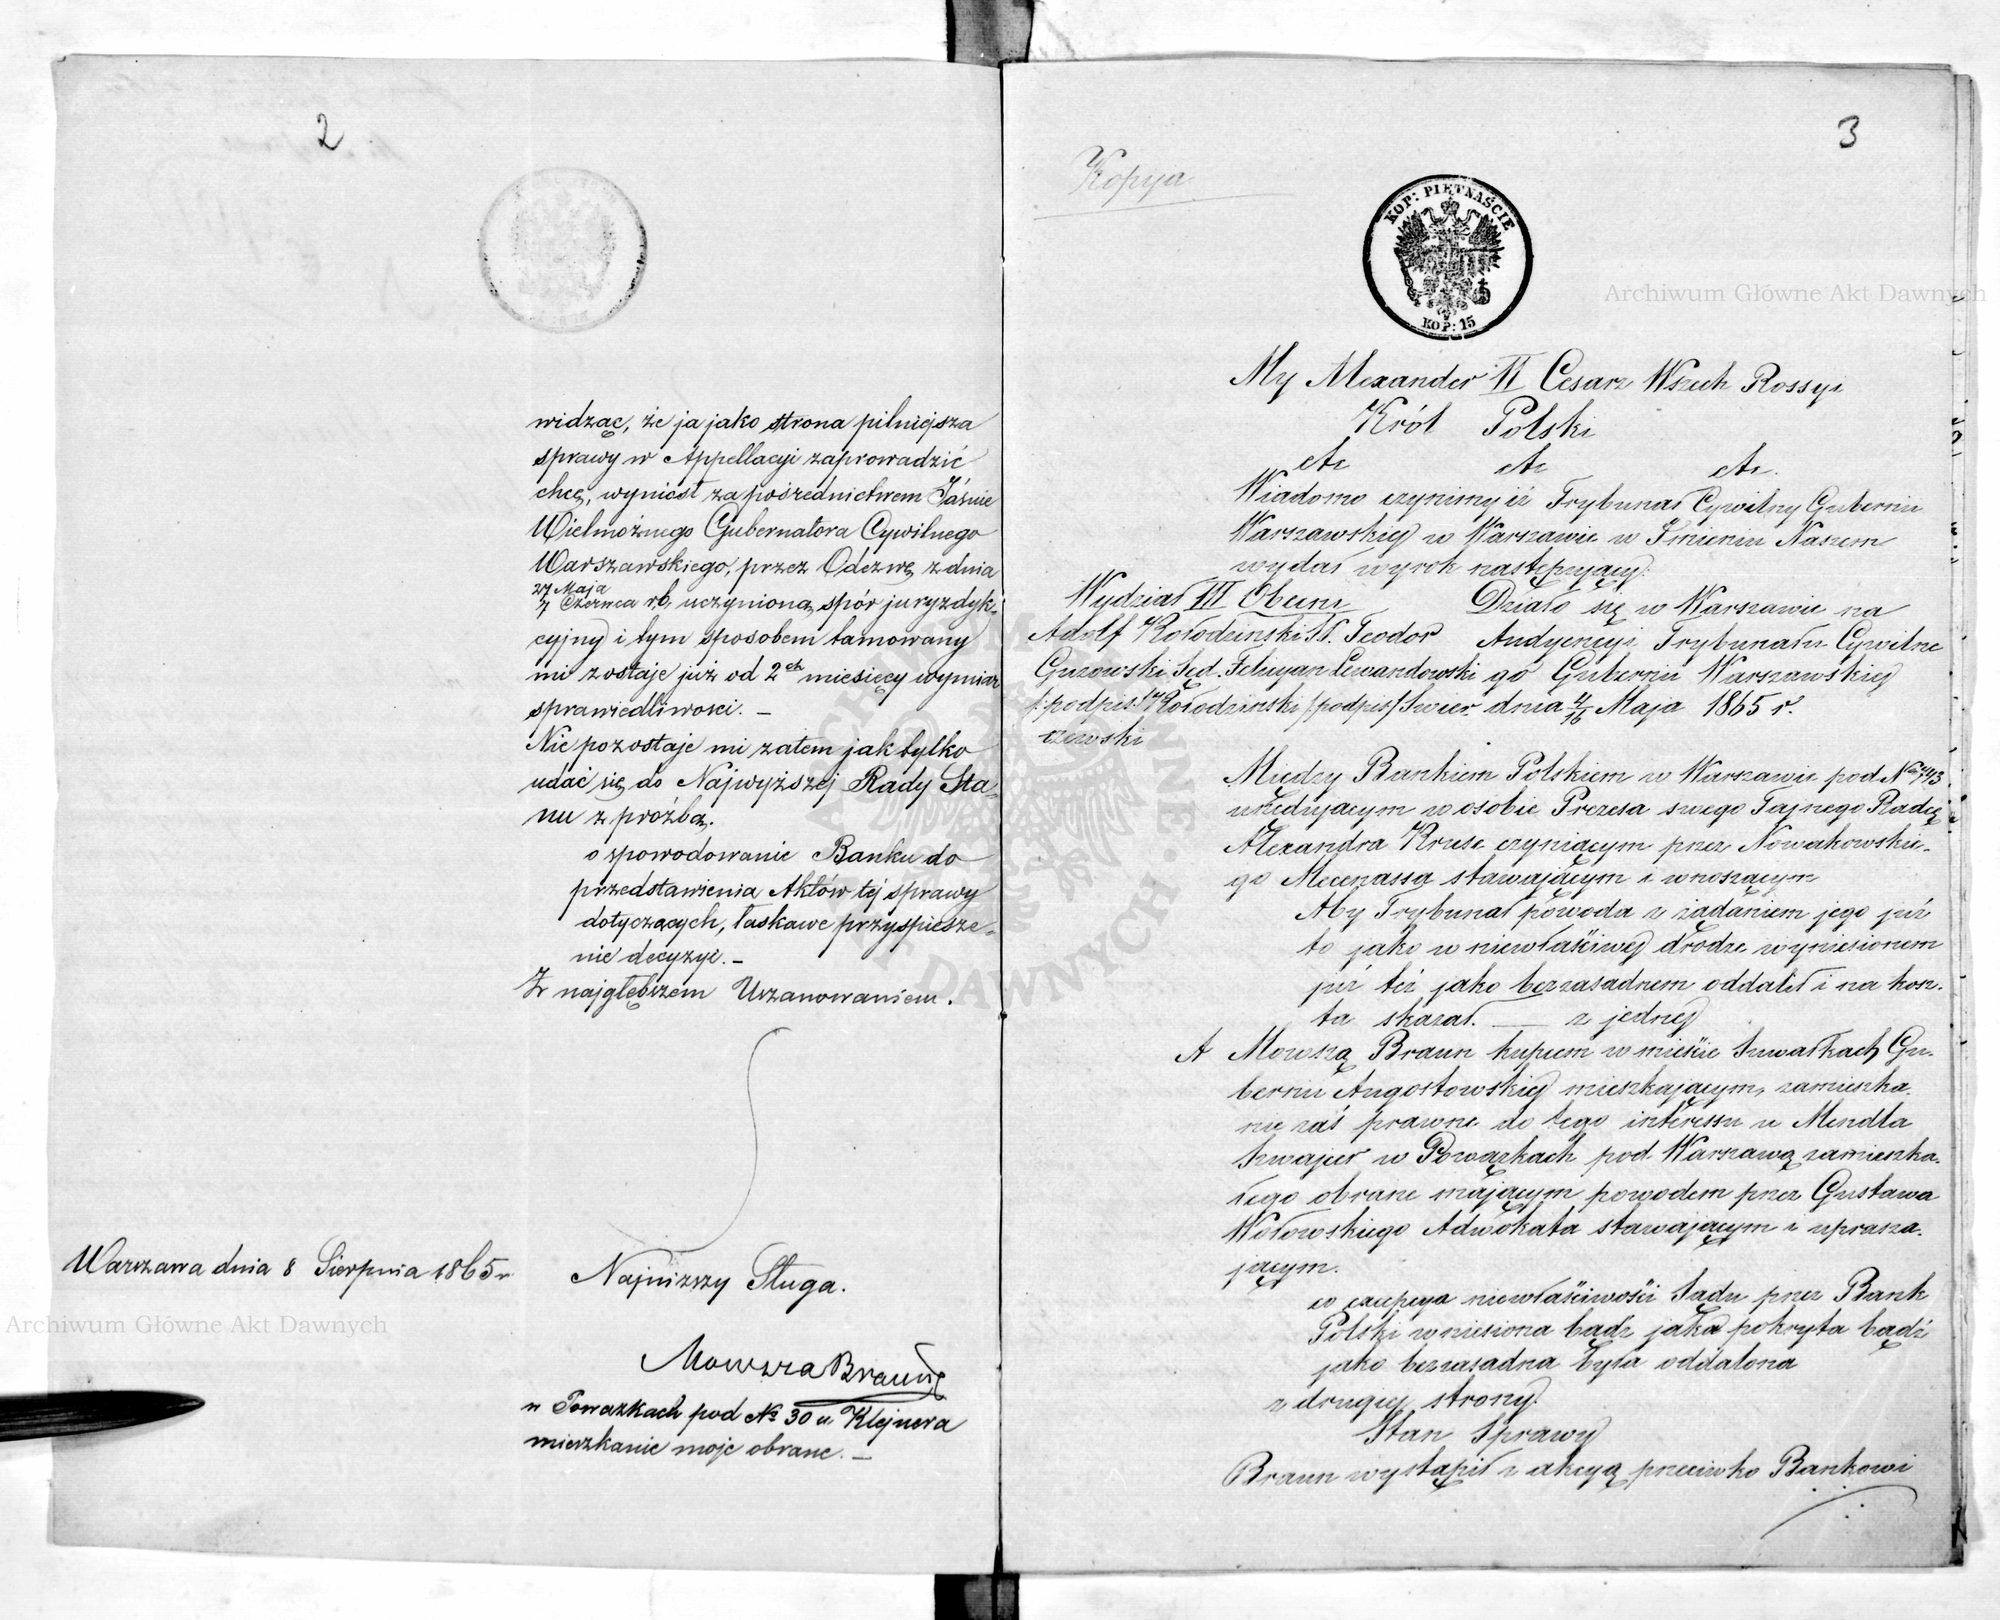 2
widząc, że ja jako strona pilniejsza
sprawy w Appellacyi zaprowadzić
chcę, wyniósł za pośrednictwem Jaśnie
Wielmożnego Gubernatora Cywilnego
Warszawskiego, przez Odezwę z dnia
27 Maja
Czerwca r.b. uczynioną, spór juryzdyk-
cyjny i tym sposobem tamowany
mi zostaje już od 2ch miesięcy wymiar
sprawiedliwosci. —
Nie pozostaje mi zatem jak tylko
udać się do Najwyższej Rady Sta-
nu z prośbą.
o spowodowanie Banku do
przedstawienia Aktów tej sprawy
dotyczących, łaskawe przyspiesze-
nie decyzyi. —
Z najgłębszem Uszanowaniem.
Warszawa dnia 8 Sierpnia 1865 r
Najniższy Sługa.
Mowsza Braun
w Powazkach pod No 30 u Klejnera
mieszkanie moje obrane. —
3
Kopya
KOP: PIĘTNAŚCIE
KOP: 15
My Alexander II Cesarz Wszech Rossyi
Król Polski
etc etc etc.
Wiadomo czynimy iż Trybunał Cywilny Gubernii
Warszawskiej w Warszawie w Imieniu Naszem
wydał wyrok następujący:
Wydział III Obecni
Adolf Kołodziński P. Teodor
Guzowski Sęd. Felicyan Lewandowski
/:podpis:/ Kołodziński /podpis/ Świer-
czewski
Działo się w Warszawie na
Audyencyi Trybunału Cywilne
go Gubernii Warszawskiej
dnia 4/16 Maja 1865 r.
Między Bankiem Polskim w Warszawie pod Nrem 743
urzędującym w osobie Prezesa swego Tajnego Radcę
Alexandra Kruse czyniącym przez Nowakowskie-
go Mecenassa stawającym i wnoszącym
Aby Trybunał powoda z żądaniem jego już
to jako w niewłaściwej drodze wyniesionem
już też jako bezzasadnem oddalił i na kosz-
ta skazał. — z jednej
A Mowszą Braun kupcem w mieście Suwałkach Gu-
bernii Augostowskiej mieszkającym, zamieszka-
nie zaś prawne do tego interessu u Mendla
Szwajcer w Powązkach pod Warszawą zamieszka-
łego obrane mającym powodem przez Gustawa
Wołowskiego Adwokata stawającym i uprasza-
jącym.
co excepcya niewłaściwości Sądu przez Bank
Polski wniesiona bądź jako pokryta bądź
jako bezzasadna była oddalona
z drugiej strony
Stan Sprawy
Braun wystąpił z akcyą przeciwko Bankowi
Archiwum Główne Akt Dawnych
Archiwum Główne Akt Dawnych